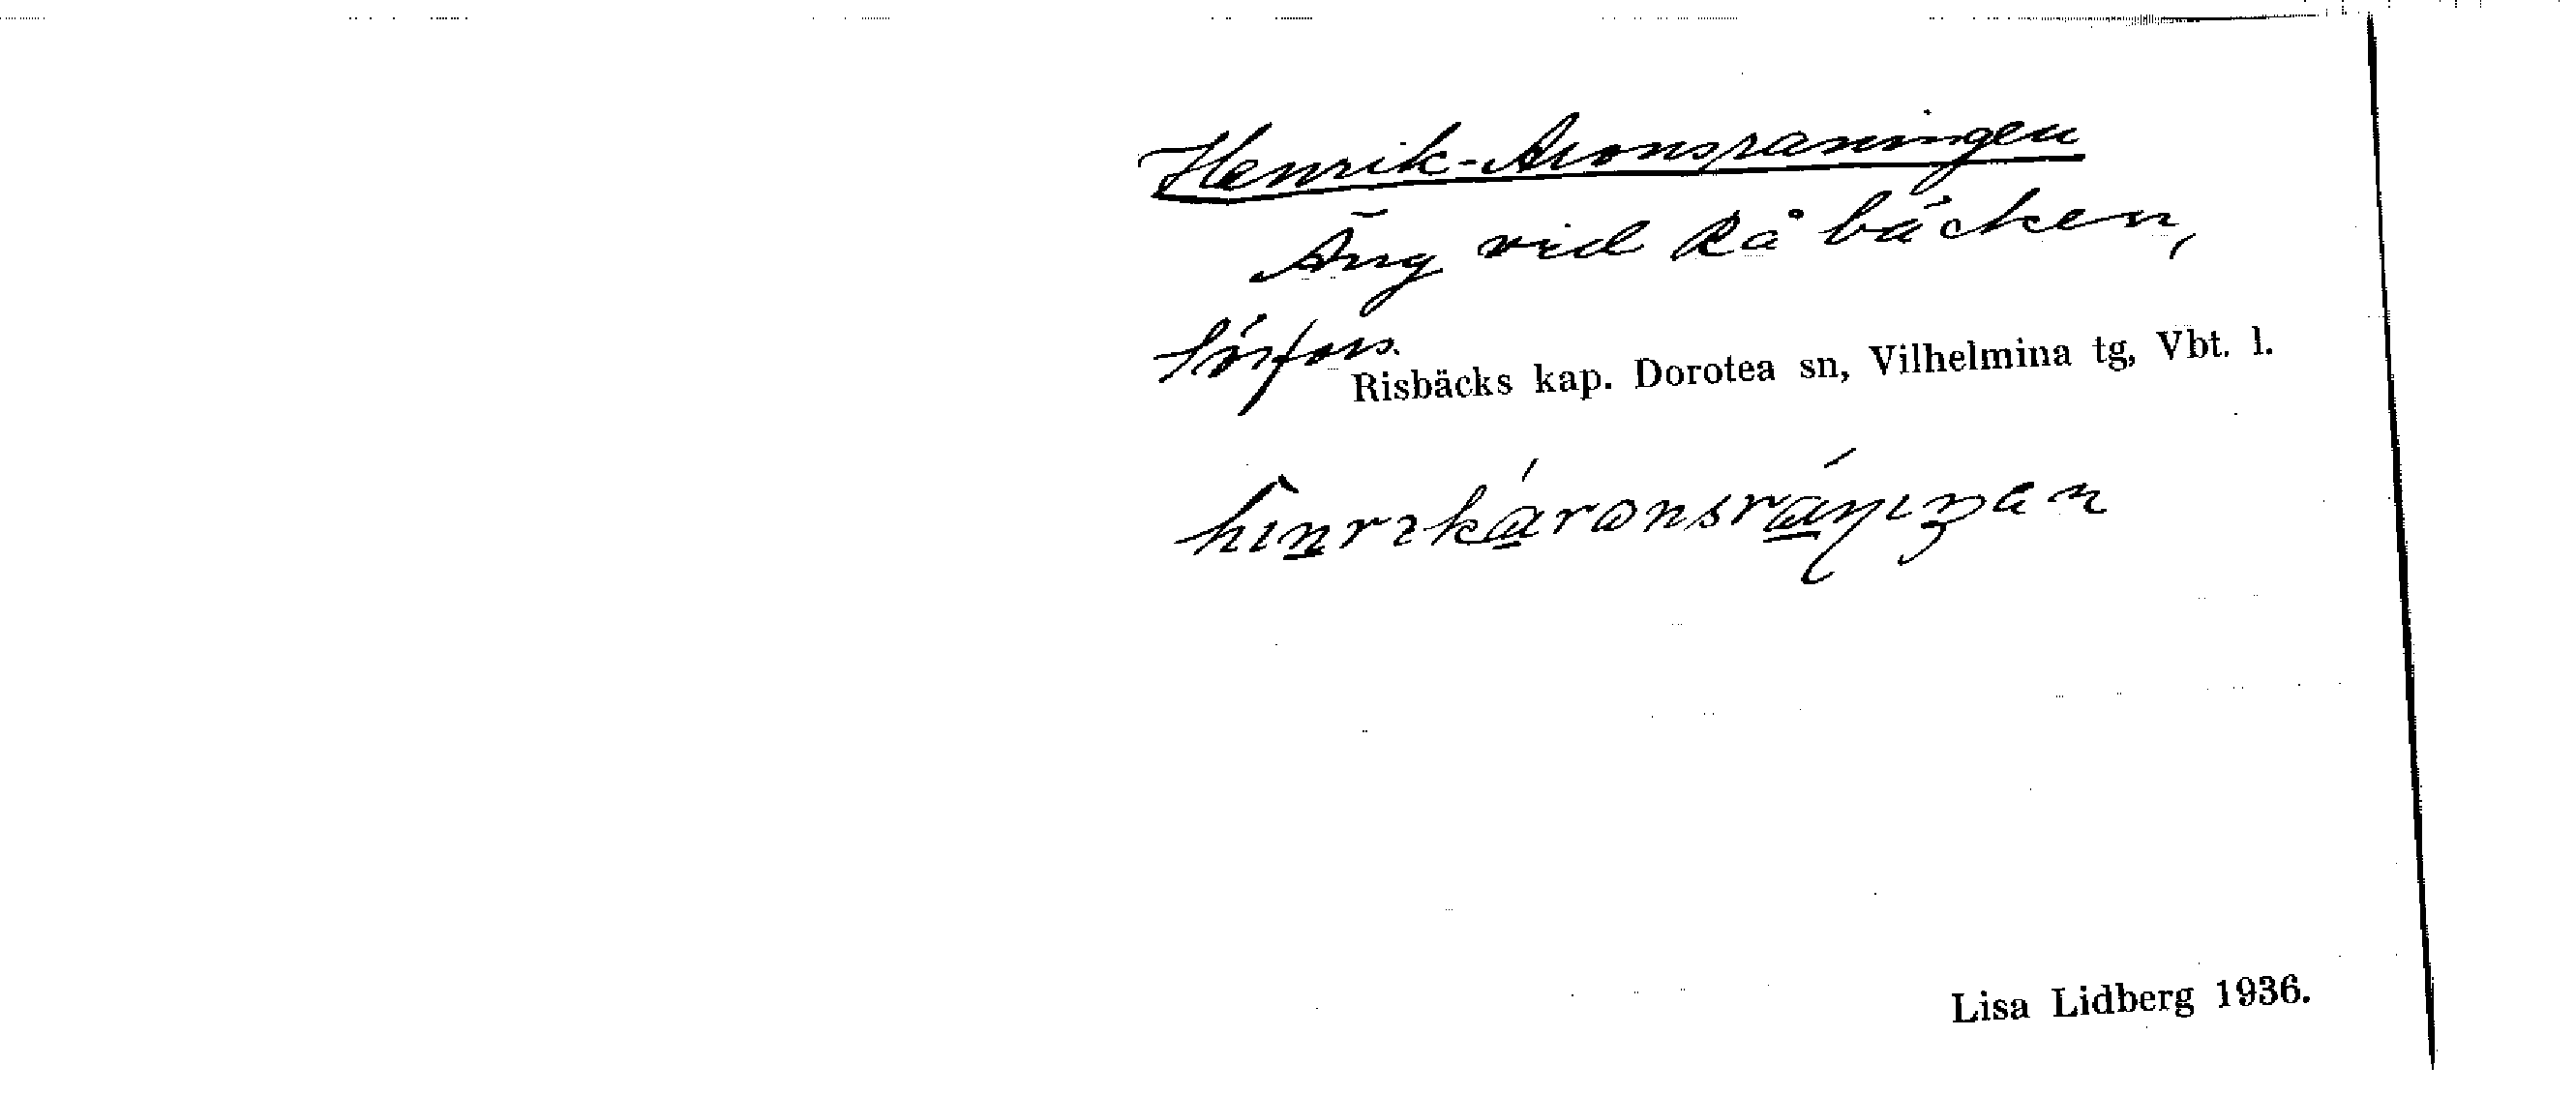 Henrik-Aronsraningen
Äng vid Råbäcken,
Sörfors.
Risbäcks kap. Dorotea sn, Vilhelmina tg, Vbt. l.
Lisa Lidberg 1936.